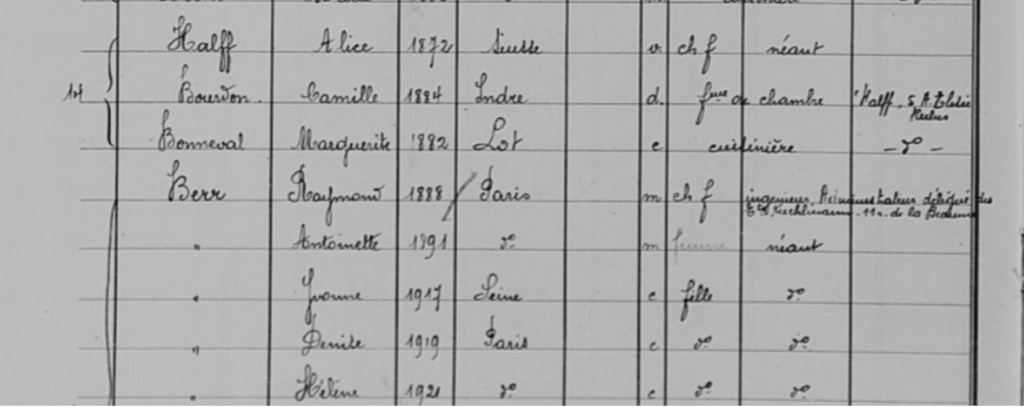 Halff Alice 1872 Suisse v. ch f néant
14 Bourdon Camille 1884 Indre d. fme de chambre Halff, 5 A. Elisée
Reclus
Bonneval Marguerite 1882 Lot c cuisinière – do –
Berr Raymond 1888 Paris m ch f ingénieur, Administrateur délégué des
Ets Kuhlmann 11 r. de la Baume
" Antoinette 1891 do m femme néant
" Yvonne 1917 Seine c fille do
" Denise 1919 Paris c do do
" Hélène 1921 do c do do